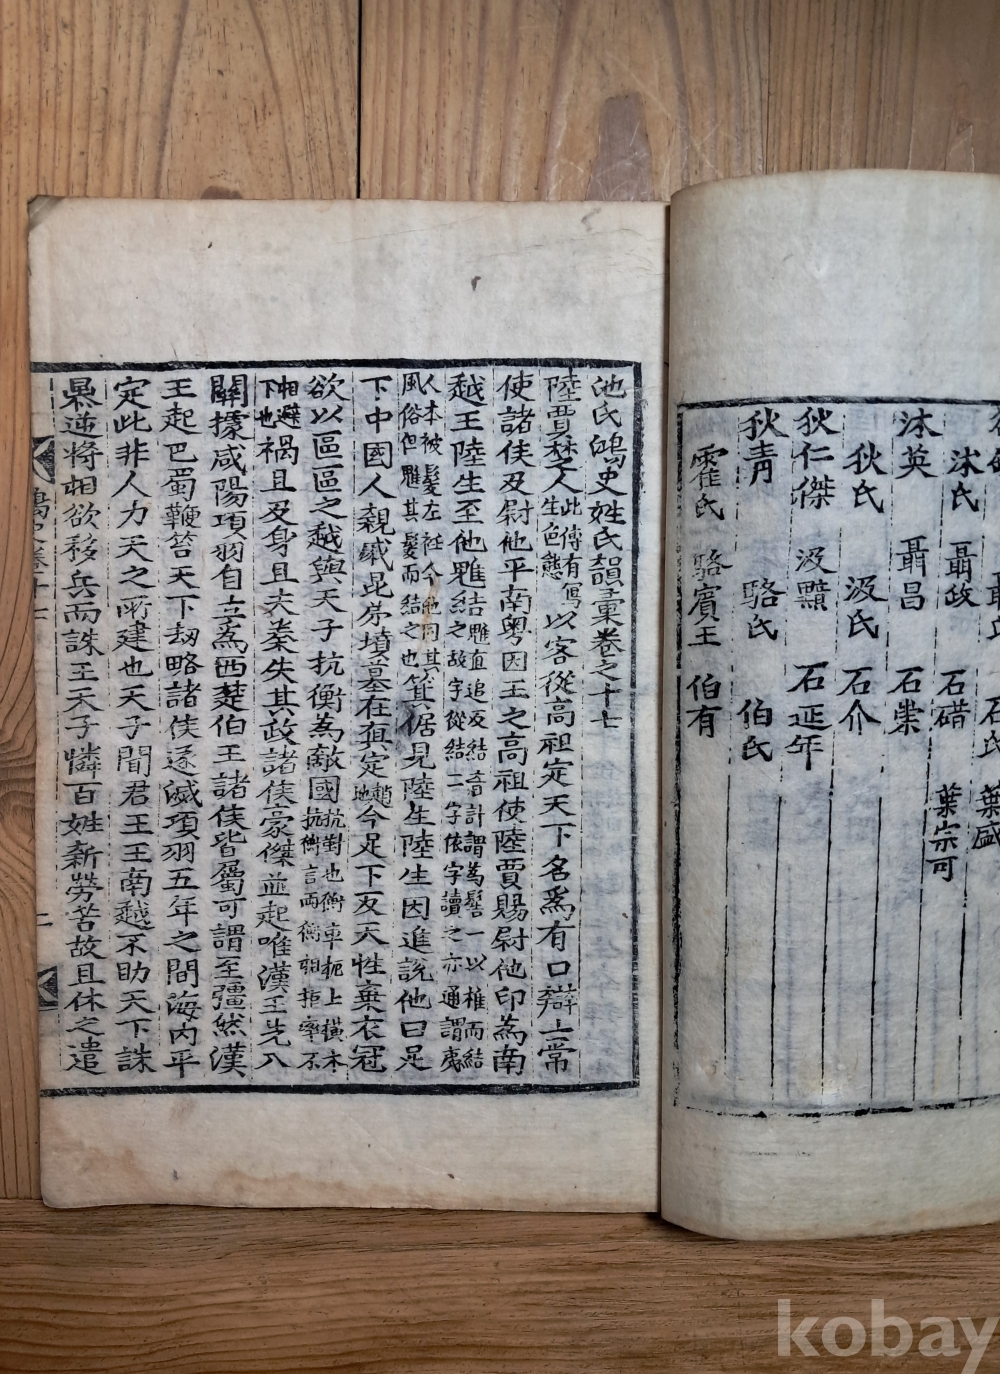 沐氏 聶政 石碏 葉宗可
沐英 聶昌 石崇
狄氏 汲氏 石介
狄仁傑 汲黯 石延年
狄青 駱氏 伯氏
霍氏 駱賓王 伯有
池氏鴻史姓氏韻彙卷之十七
陸賈楚人此傳有寫生色態以客從高祖定天下名爲有口辯上常
使諸侯及尉他平南粤因王之高祖使陸賈賜尉他印爲南
越王陸生至他魋結魋直追反結音計謂爲髻一以椎而結之故字從結二字依字讀之亦通謂夷
人本被髮左衽今他同其風俗但魋其髮而結之也箕倨見陸生陸生因進說他曰足
下中國人親戚昆弟墳墓在眞定趙地今足下反天性棄衣冠
欲以區區之越與天子抗衡爲敵國抗對也衡車軛上橫木抗衡言兩衡相拒率不
相避下也禍且及身且夫秦失其政諸侯豪傑並起唯漢王先入
關據咸陽項羽自立爲西楚伯王諸侯皆屬可謂至彊然漢
王起巴蜀鞭笞天下刼略諸侯遂滅項羽五年之間海内平
定此非人力天之所建也天子聞君王王南越不助天下誅
暴逆將相欲移兵而誅王天子憐百姓新勞苦故且休之遣
鴻史卷十七
kobay